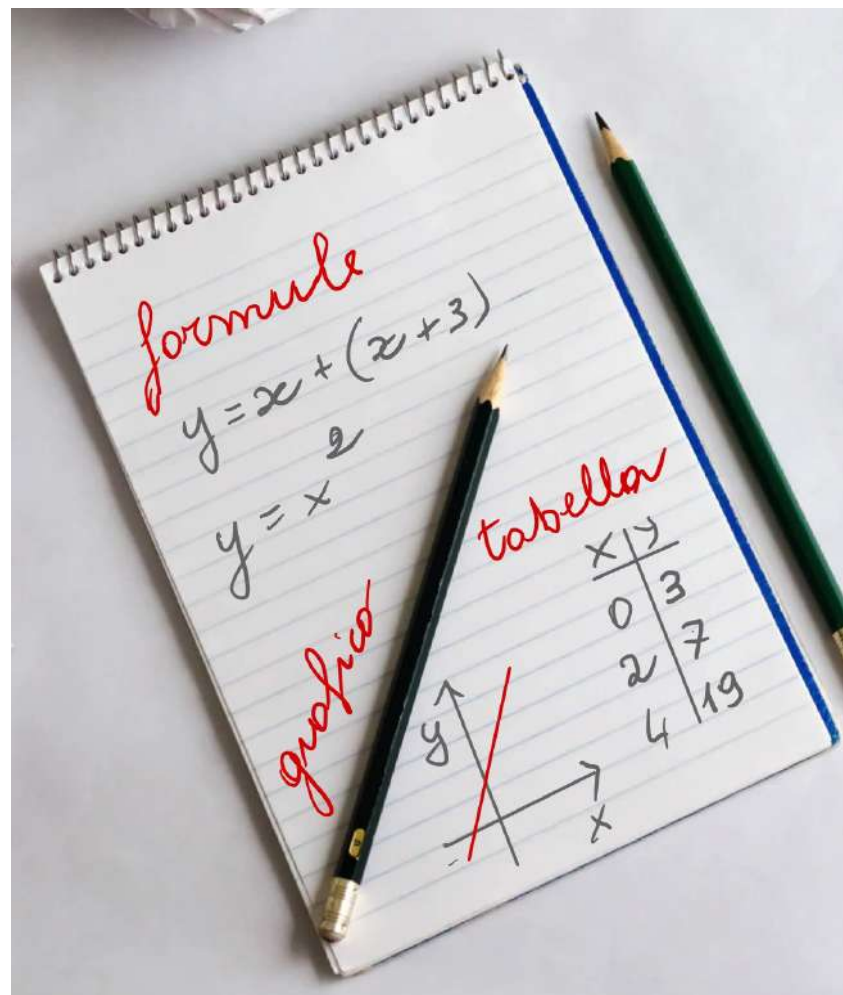 formule
y = x + (x + 3)
y = x²
tabella
x y
0 3
2 7
4 19
grafico
y
x